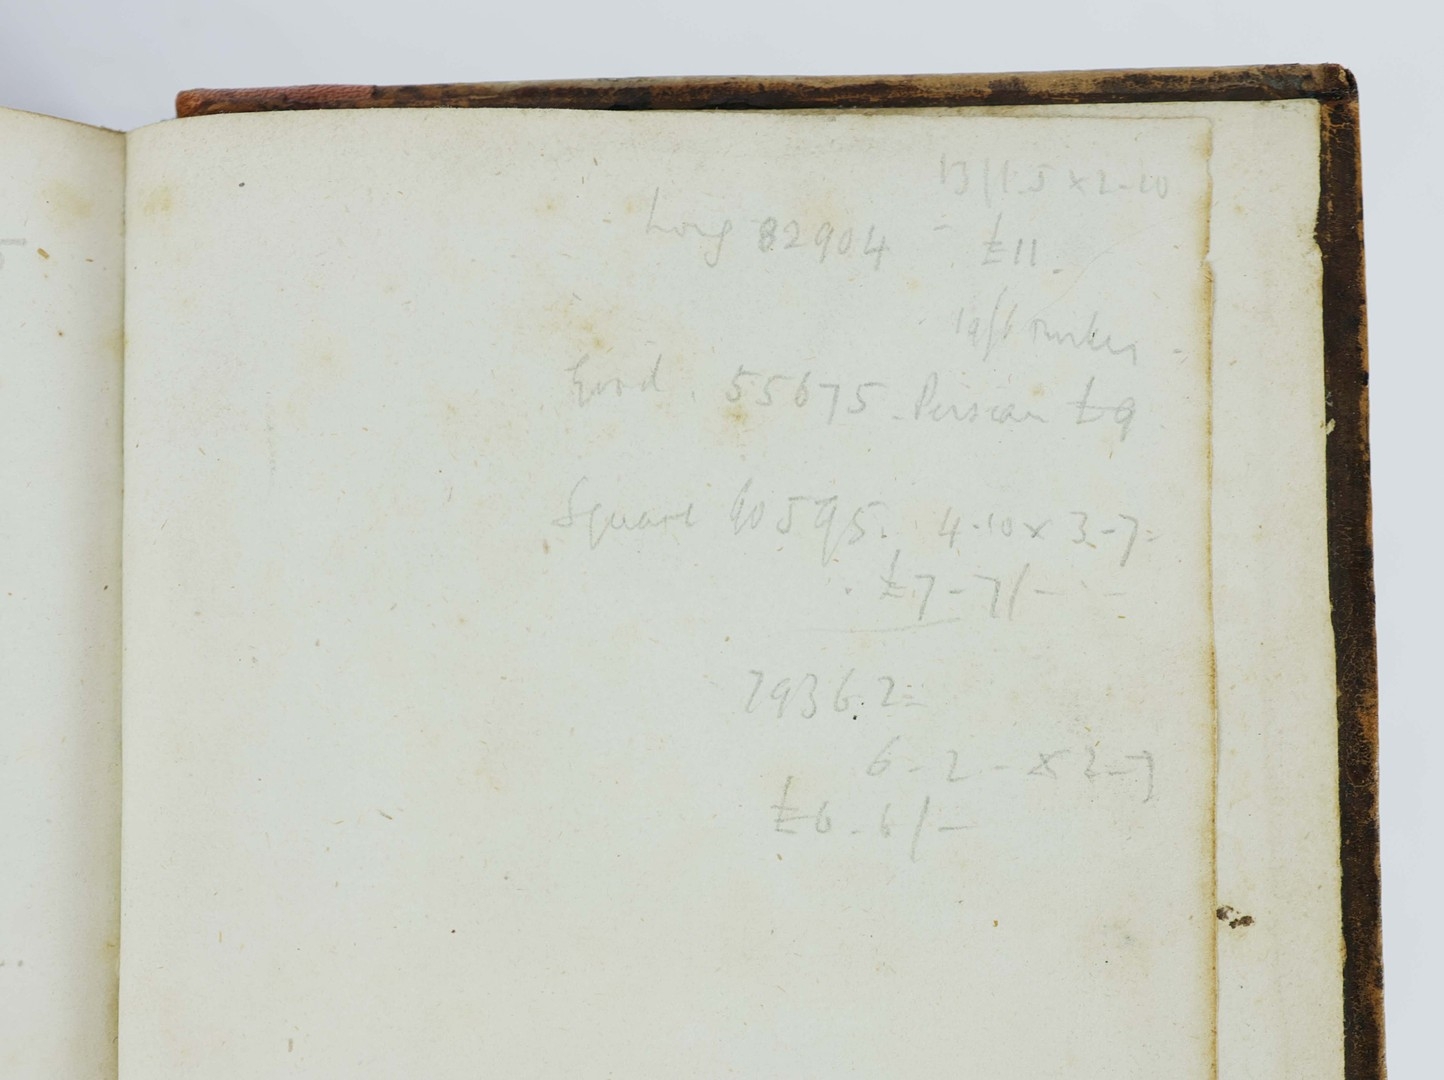 13/1.5 x 2-10
Long 82904 - £11.
19/6
Good. 55675 - Persian £9
Square 90595. 4-10 x 3-7=
£7-7/-
79362=
6-2- x 2-7
£6-6/-